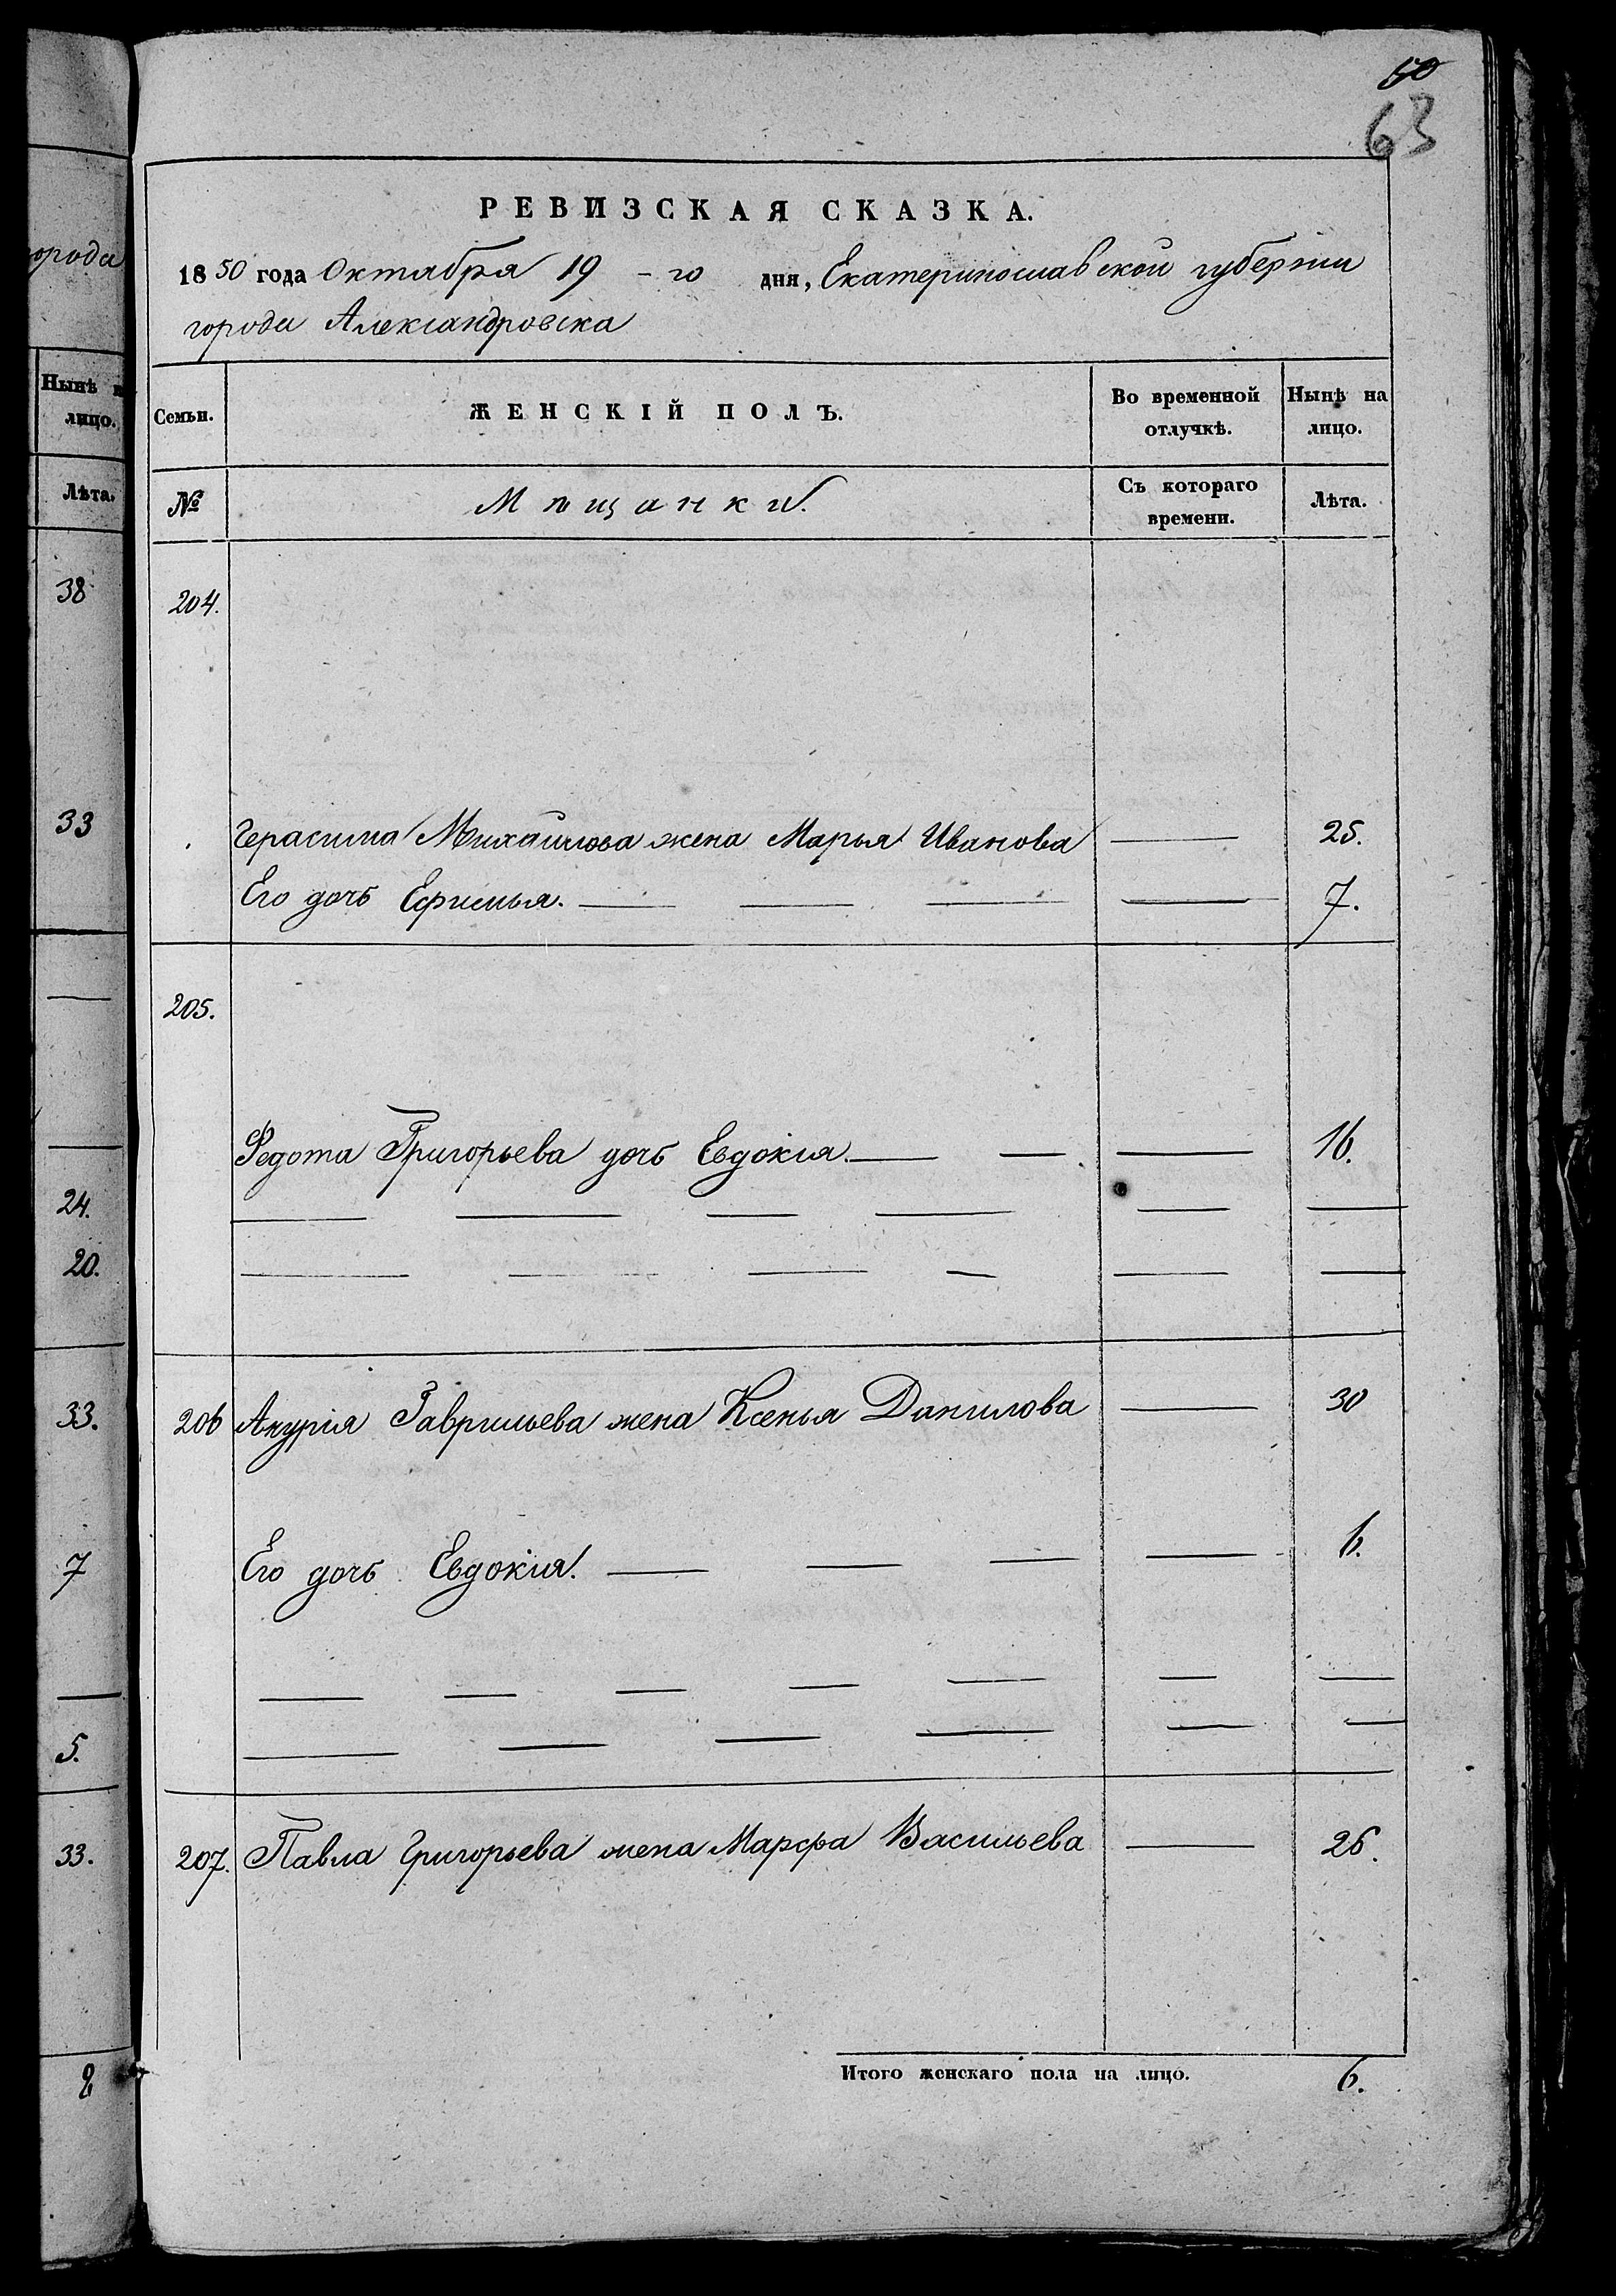 50
63
города
РЕВИЗСКАЯ СКАЗКА.
1850 года Октября 19-го дня, Екатеринославской губернии
города Александровска
Нынѣ
лицо.
Лѣта.
Семьи.
ЖЕНСКІЙ ПОЛЪ.
Во временной отлучкѣ.
Нынѣ на лицо.
№
Мѣщанки.
Съ котораго времени.
Лѣта.
38
204.
33
Герасима Михайлова жена Марья Иванова — 25.
Его дочь Ефимья. — — — — 7.
205.
Федота Григорьева дочь Евдокія. — — — 16.
24.
20.
33.
206 Гаврильева жена Ксенья Данилова — 30
7
Его дочь Евдокія. — — — — 6.
5.
33.
207. Павла Григорьева жена Марфа Васильева — 26.
Итого женскаго пола на лицо. 6.
8